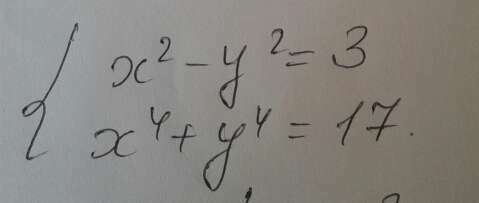 x² - y² = 3
x⁴ + y⁴ = 17.